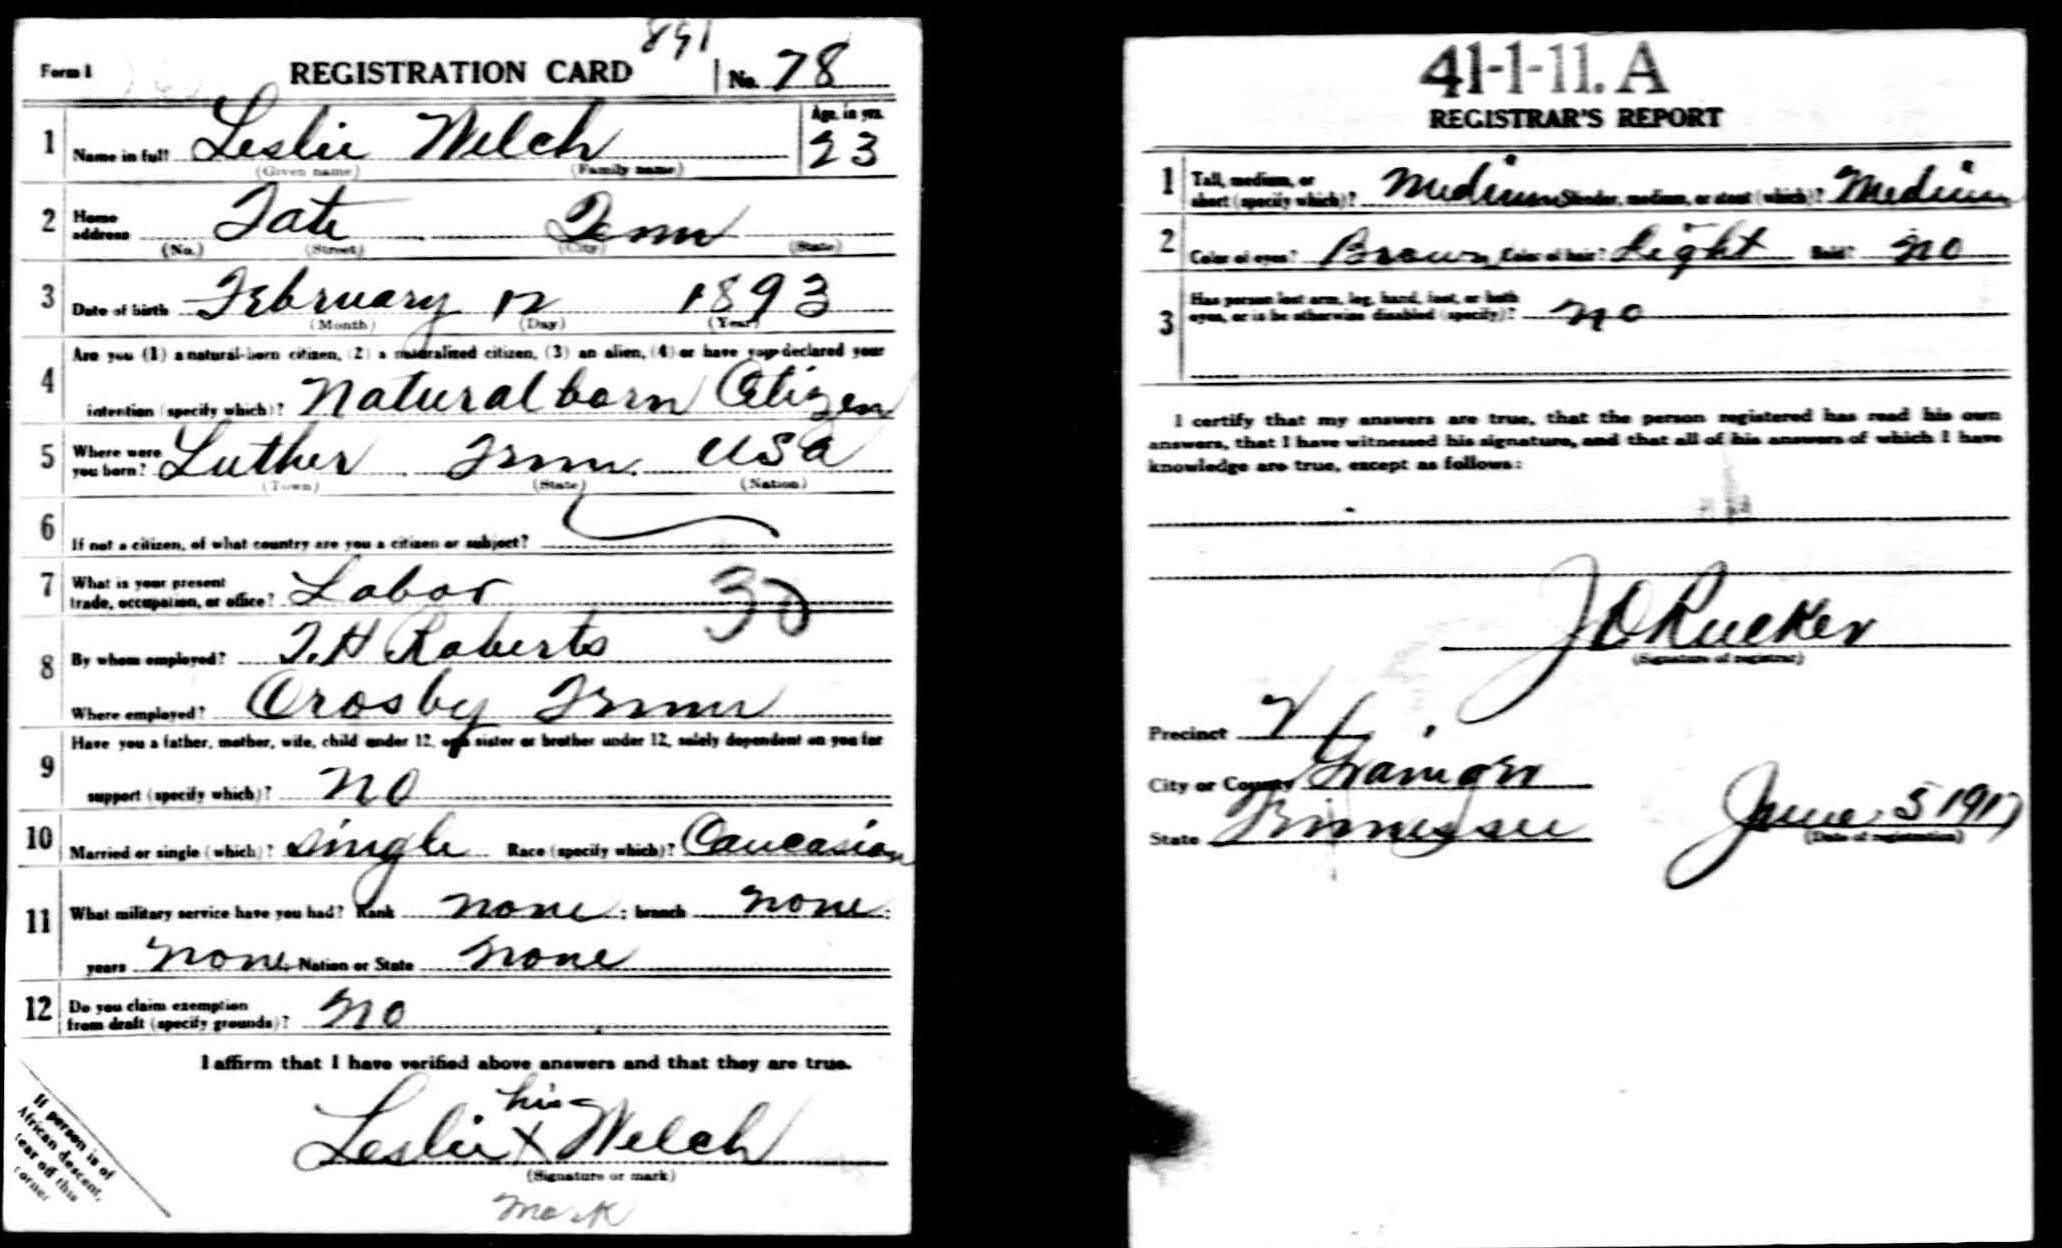 891
Form 1 REGISTRATION CARD No. 78
1 Name in full Leslie Welch Age, in yrs. 23
(Given name) (Family name)
2 Home address Tate Tenn
(No.) (Street) (City) (State)
3 Date of birth February 12 1893
(Month) (Day) (Year)
4 Are you (1) a natural-born citizen, (2) a naturalized citizen, (3) an alien, (4) or have you declared your
intention (specify which)? Natural born Citizen
5 Where were you born? Luther Tenn. USA
(Town) (State) (Nation)
6 If not a citizen, of what country are you a citizen or subject?
7 What is your present trade, occupation, or office? Labor 30
8 By whom employed? T. H Roberts
Where employed? Crosby Tenn
9 Have you a father, mother, wife, child under 12, or a sister or brother under 12, solely dependent on you for
support (specify which)? No
10 Married or single (which)? Single Race (specify which)? Caucasian
11 What military service have you had? Rank none ; branch none ;
years none Nation or State none
12 Do you claim exemption from draft (specify grounds)? No
I affirm that I have verified above answers and that they are true.
his
Leslie X Welch
(Signature or mark)
mark
If person is of
African descent,
tear off this
corner
41-1-11. A
REGISTRAR'S REPORT
1 Tall, medium, or short (specify which)? Medium Slender, medium, or stout (which)? Medium
2 Color of eyes? Brown Color of hair? Light Bald? No
3 Has person lost arm, leg, hand, foot, or both
eyes, or is he otherwise disabled (specify)? no
I certify that my answers are true, that the person registered has read his own
answers, that I have witnessed his signature, and that all of his answers of which I have
knowledge are true, except as follows:
J D Rucker
(Signature of registrar)
Precinct
City or County Grainger
State Tennessee June 5 1917
(Date of registration)